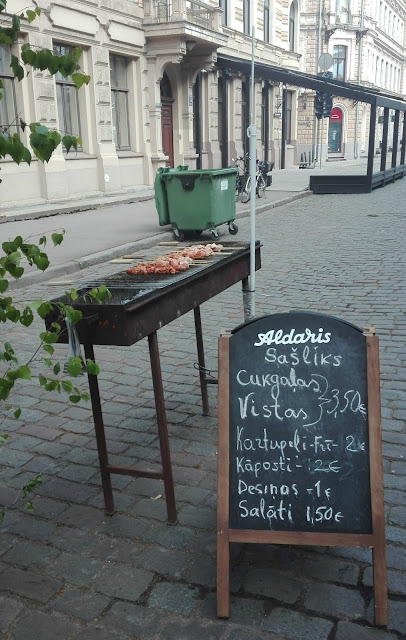 Aldaris
Sašliks
Cukgaļas
Vistas } 3,50€
Kartupeļi-Frī- 2€
Kāposti - 2€
Desiņas - 1€
Salāti 1,50€